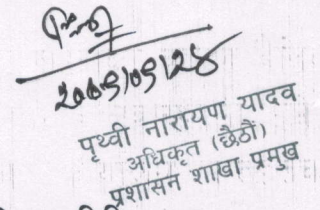 २०७९/०९/२४
पृथ्वी नारायण यादव
अधिकृत (छैठौं)
प्रशासन शाखा प्रमुख